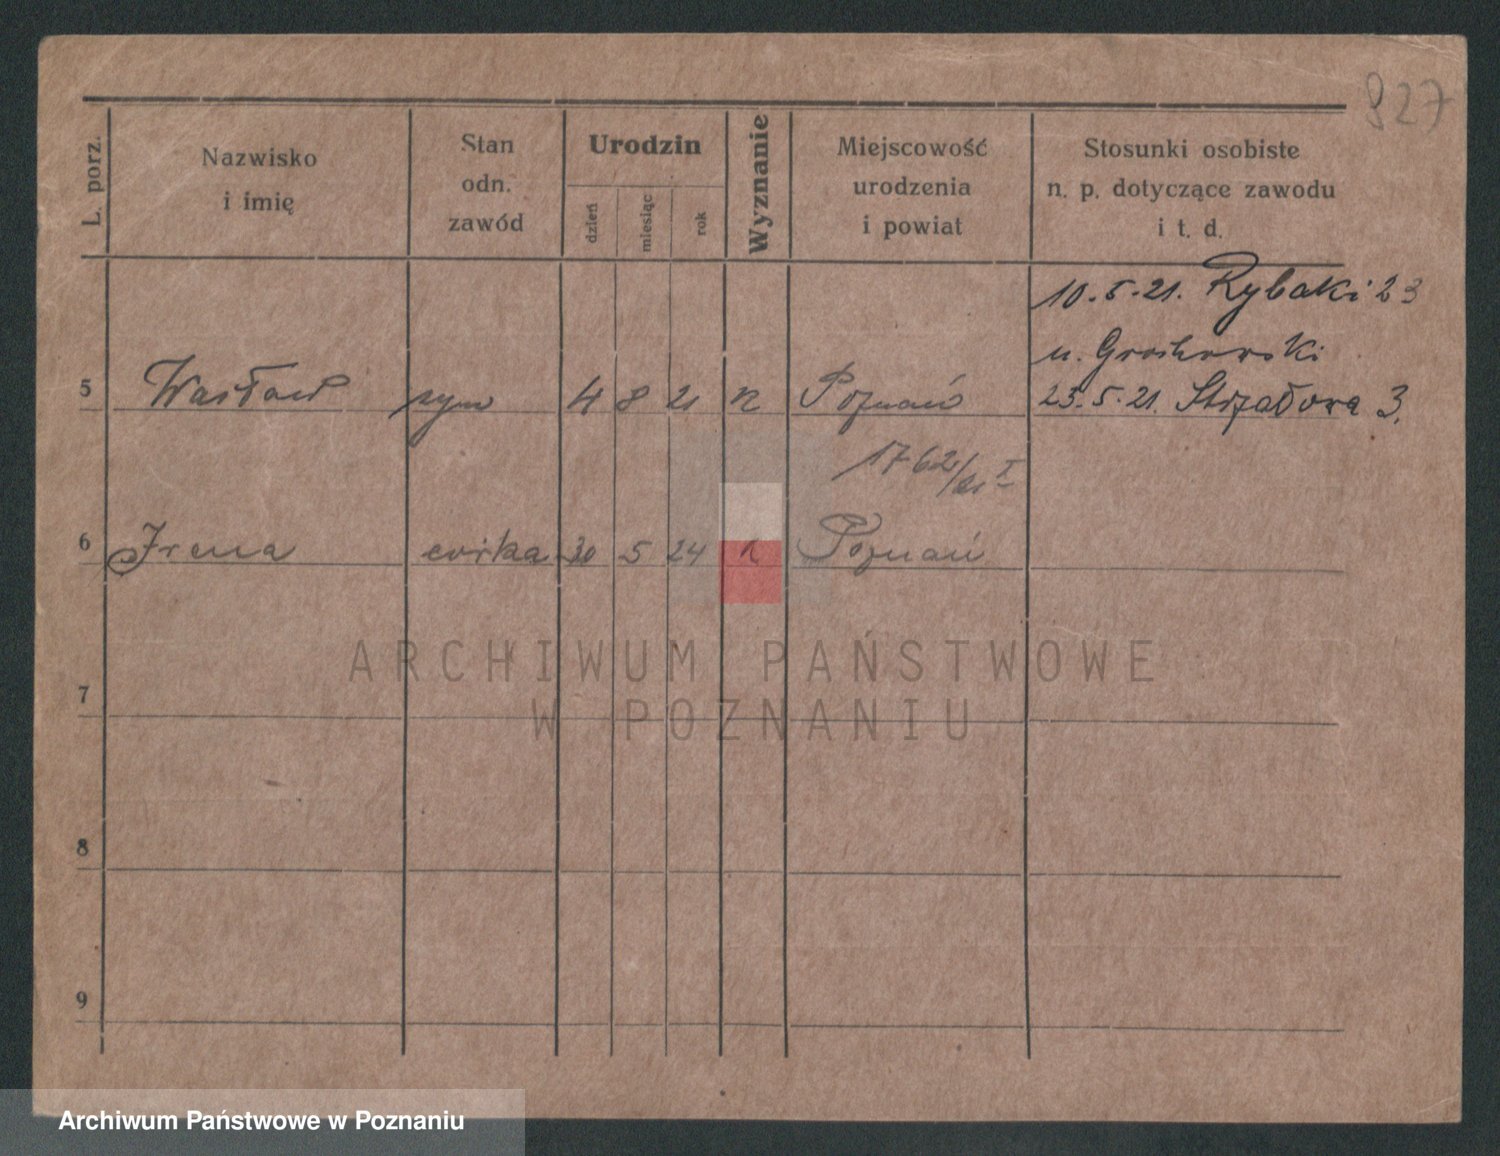 927
L. porz.
Nazwisko
i imię
Stan
odn.
zawód
Urodzin
dzień
miesiąc
rok
Wyznanie
Miejscowość
urodzenia
i powiat
Stosunki osobiste
n. p. dotyczące zawodu
i t. d.
10.5.21. Rybaki 23
u. Grochowski
5 Wacław syn 4 8 21 Poznań 23.5.21. Strzałowa 3.
1762/21 I
6 Irena córka 30 5 24 Poznań
7
8
9
ARCHIWUM PAŃSTWOWE
W POZNANIU
Archiwum Państwowe w Poznaniu